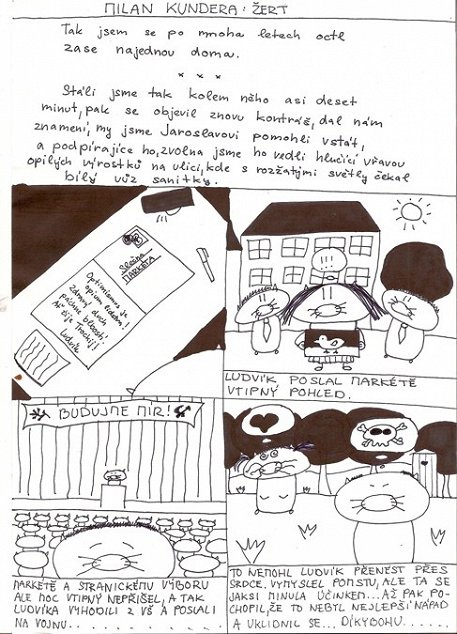 MILAN KUNDERA: ŽERT
Tak jsem se po mnoha letech octl
zase najednou doma.
x x x
Stáli jsme tak kolem něho asi deset
minut, pak se objevil znovu kontráš, dal nám
znamení, my jsme Jaroslavovi pomohli vstát,
a podpírajíce ho, zvolna jsme ho vedli hlučící vřavou
opilých výrostků na ulici, kde s rozžatými světly čekal
bílý vůz sanitky.
Slečna
MARKÉTA
Optimismus je
opium lidstva!
Zdravý duch
páchne blbostí.
Ať žije Trockij!
Ludvík
LUDVÍK POSLAL MARKÉTĚ
VTIPNÝ POHLED.
BUDUJME MÍR!
MARKÉTĚ A STRANICKÉMU VÝBORU
ALE MOC VTIPNÝ NEPŘIŠEL, A TAK
LUDVÍKA VYHODILI Z VŠ A POSLALI
NA VOJNU..........
TO NEMOHL LUDVÍK PŘENÉST PŘES
SRDCE. VYMYSLEL POMSTU, ALE TA SE
JAKSI MINULA ÚČINKEM...AŽ PAK PO-
CHOPIL, ŽE TO NEBYL NEJLEPŠÍ NÁPAD
A UKLIDNIL SE...DÍKYBOHU.......